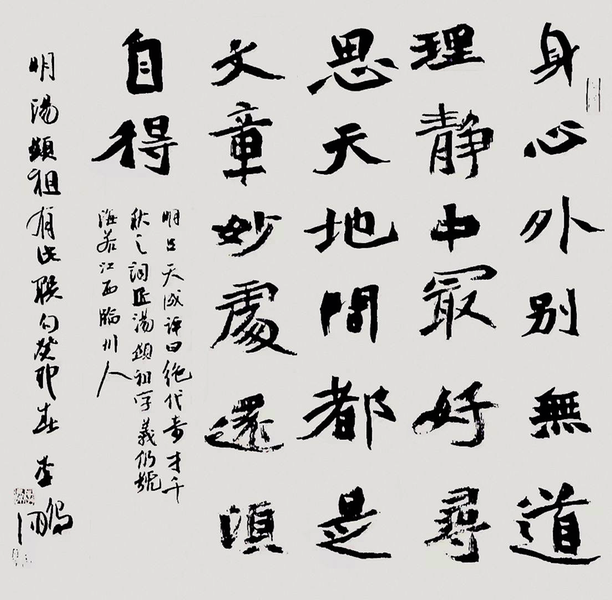 身心外別無道
理靜中最好尋
思天地間都是
文章妙處還湏
自得
明吕天成評曰絕代奇才千
秋之詞匠湯顯祖字義仍號
海若江西臨川人
明湯顯祖有此聯句癸卯春 李鵬